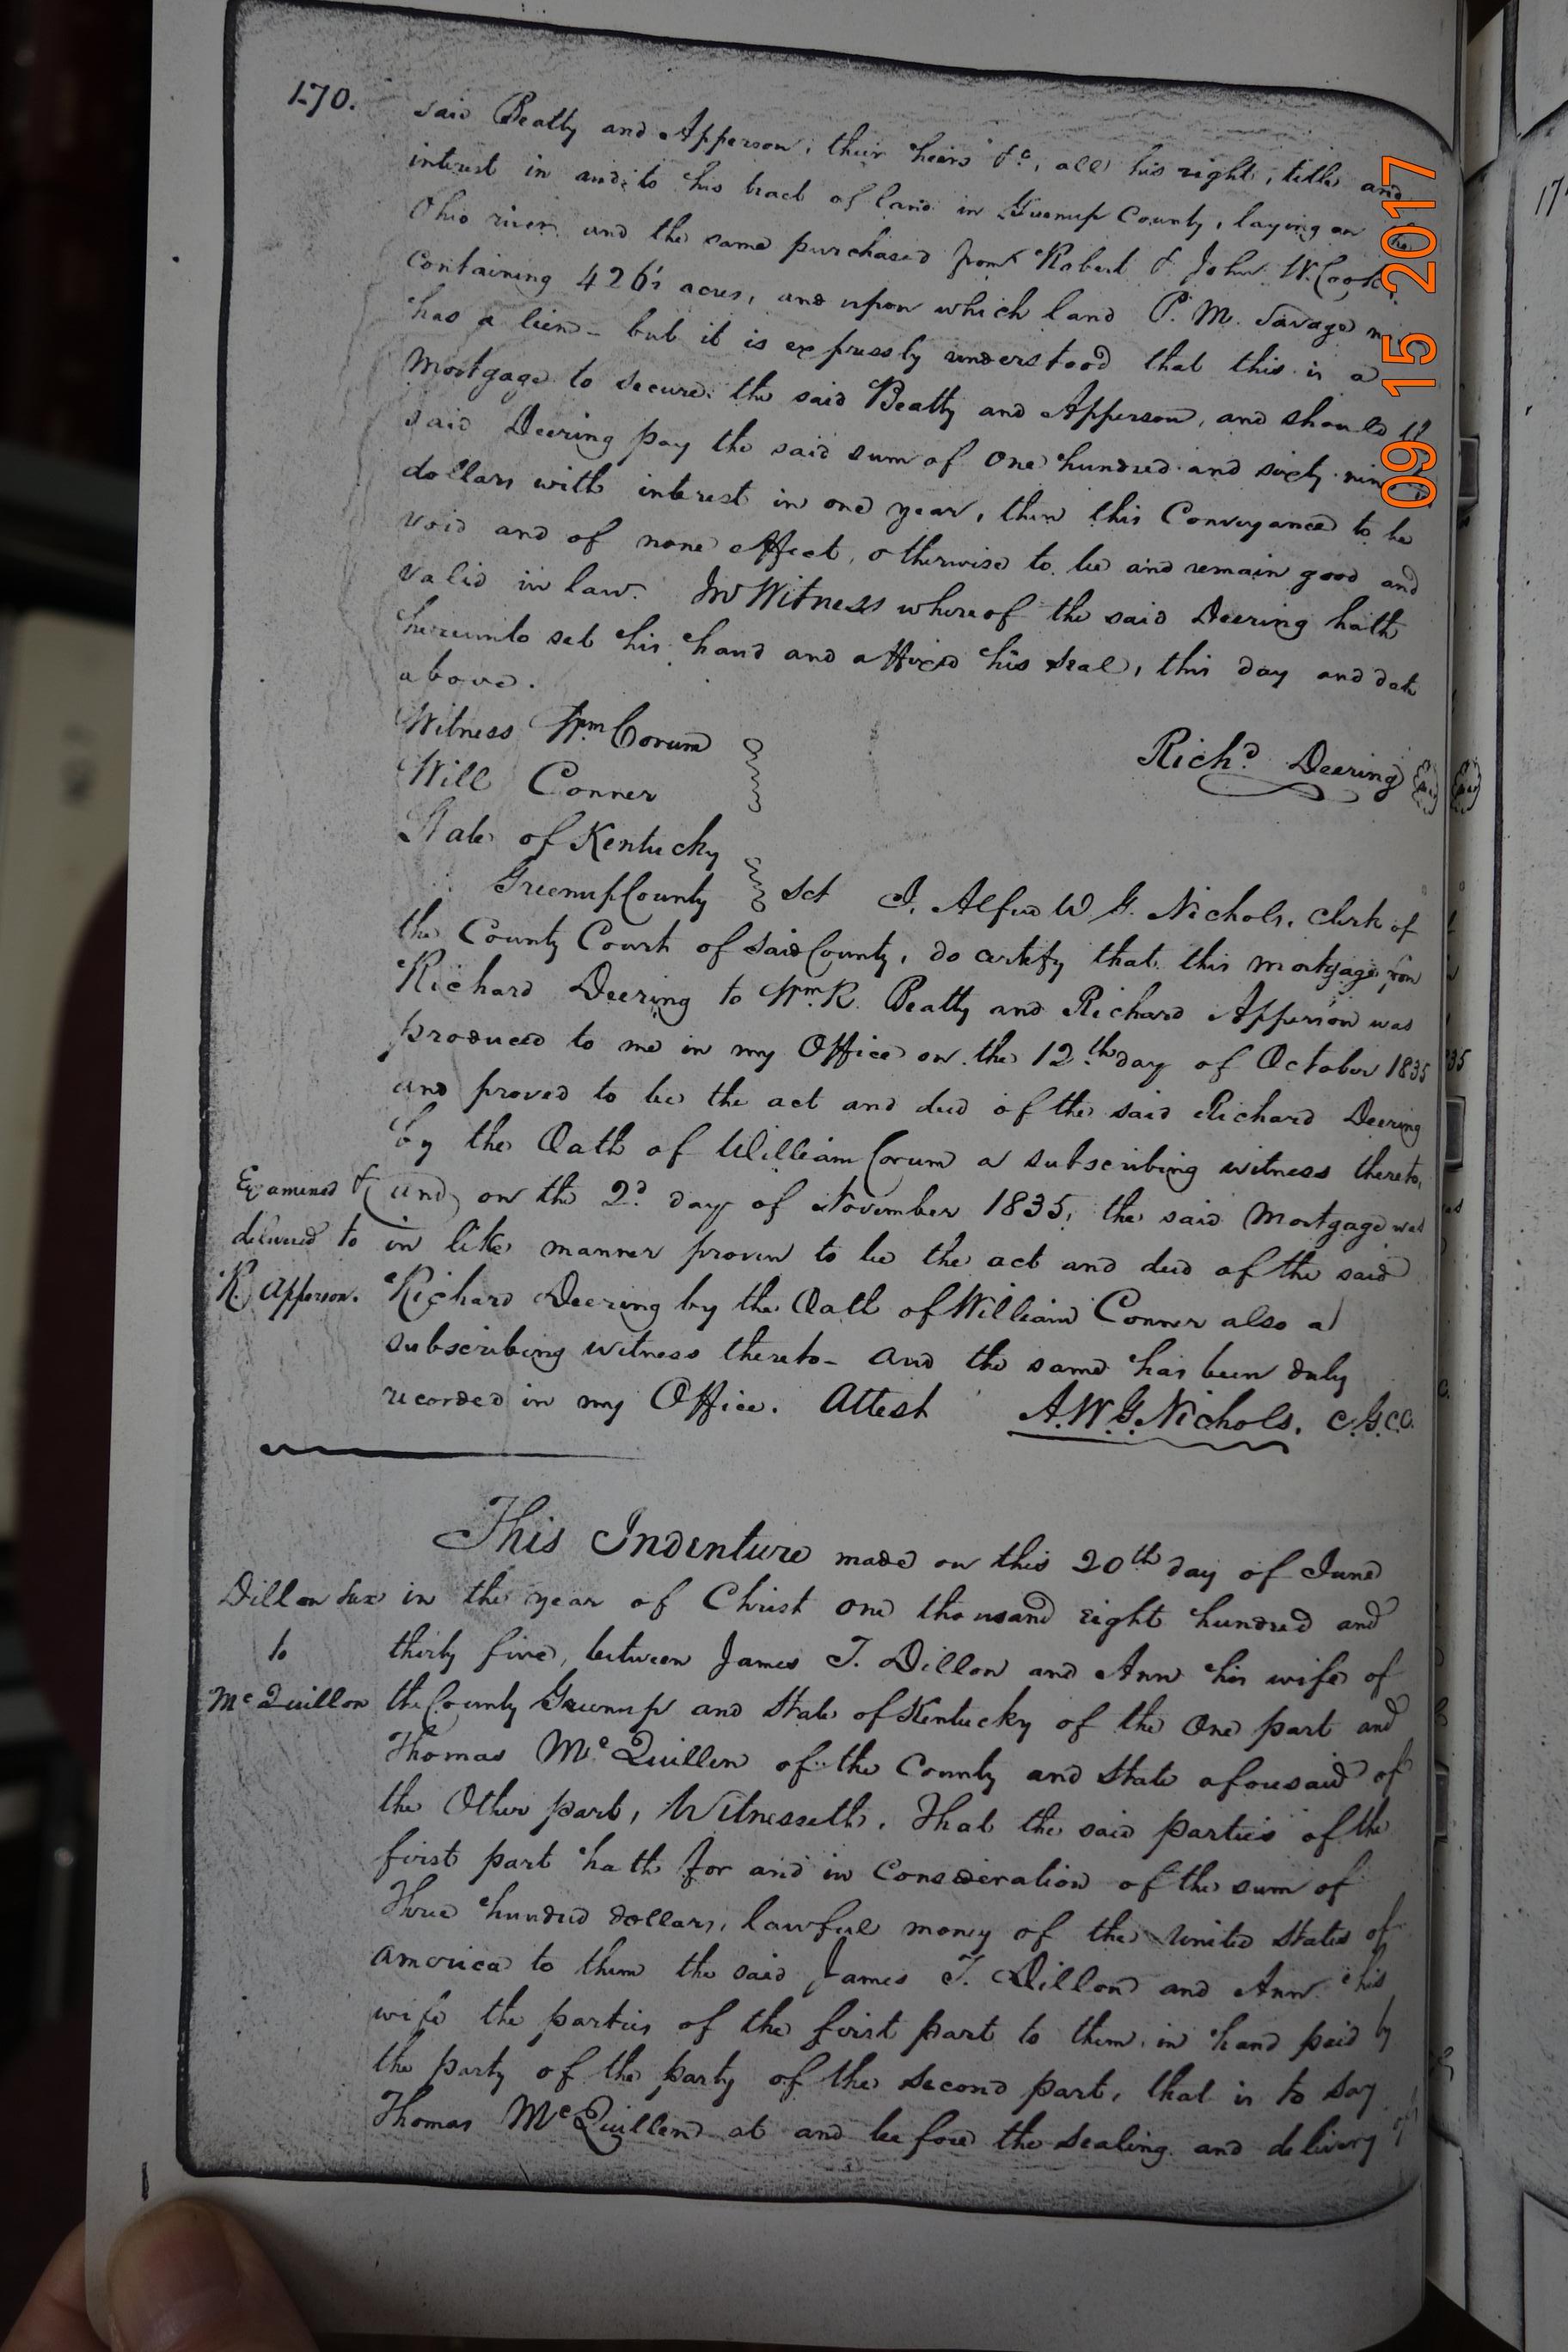 170.
said Beatty and Apperson, their heirs &c, all his right, title and
interest in and to his tract of land in Greenup County, laying on the
Ohio river and the same purchased from Robert & John W. Cook,
containing 426 acres, and upon which land P. M. Savage
has a lien - but it is expressly understood that this is a
Mortgage to secure the said Beatty and Apperson, and should the
said Deering pay the said sum of One hundred and sixty nine
dollars with interest in one year, then this Conveyance to be
void and of none effect, otherwise to be and remain good and
valid in law. In Witness whereof the said Deering hath
hereunto set his hand and affixed his seal, this day and date
above.
Witness Wm Corum
Will Conner
Richd. Deering
State of Kentucky
Greenup County Sct I, Alfred W G. Nichols, clerk of
the County Court of said County, do certify that this mortgage from
Richard Deering to Wm R. Beatty and Richard Apperson was
produced to me in my Office on the 12th day of October 1835
and proved to be the act and deed of the said Richard Deering
by the Oath of William Corum a subscribing witness thereto,
and on the 2d day of November 1835, the said Mortgage was
in like manner proven to be the act and deed of the said
Richard Deering by the Oath of William Conner also a
subscribing witness thereto - and the same has been duly
recorded in my Office. Attest A. W. G. Nichols, C.G.C.C.
Examined &
delivered to
R. Apperson.
This Indenture made on this 20th day of June
in the year of Christ one thousand eight hundred and
thirty five, between James T. Dillon and Ann his wife of
the County Greenup and State of Kentucky of the One part and
Thomas McQuillen of the County and State aforesaid of
the Other part, Witnesseth, That the said parties of the
first part hath for and in Consideration of the sum of
Three hundred dollars, lawful money of the United States of
america to them the said James T. Dillon and Ann his
wife the parties of the first part to them in hand paid by
the party of the party of the second part, that is to say
Thomas McQuillen at and before the sealing and delivery
Dillon &ux
to
McQuillon
09 15 2017